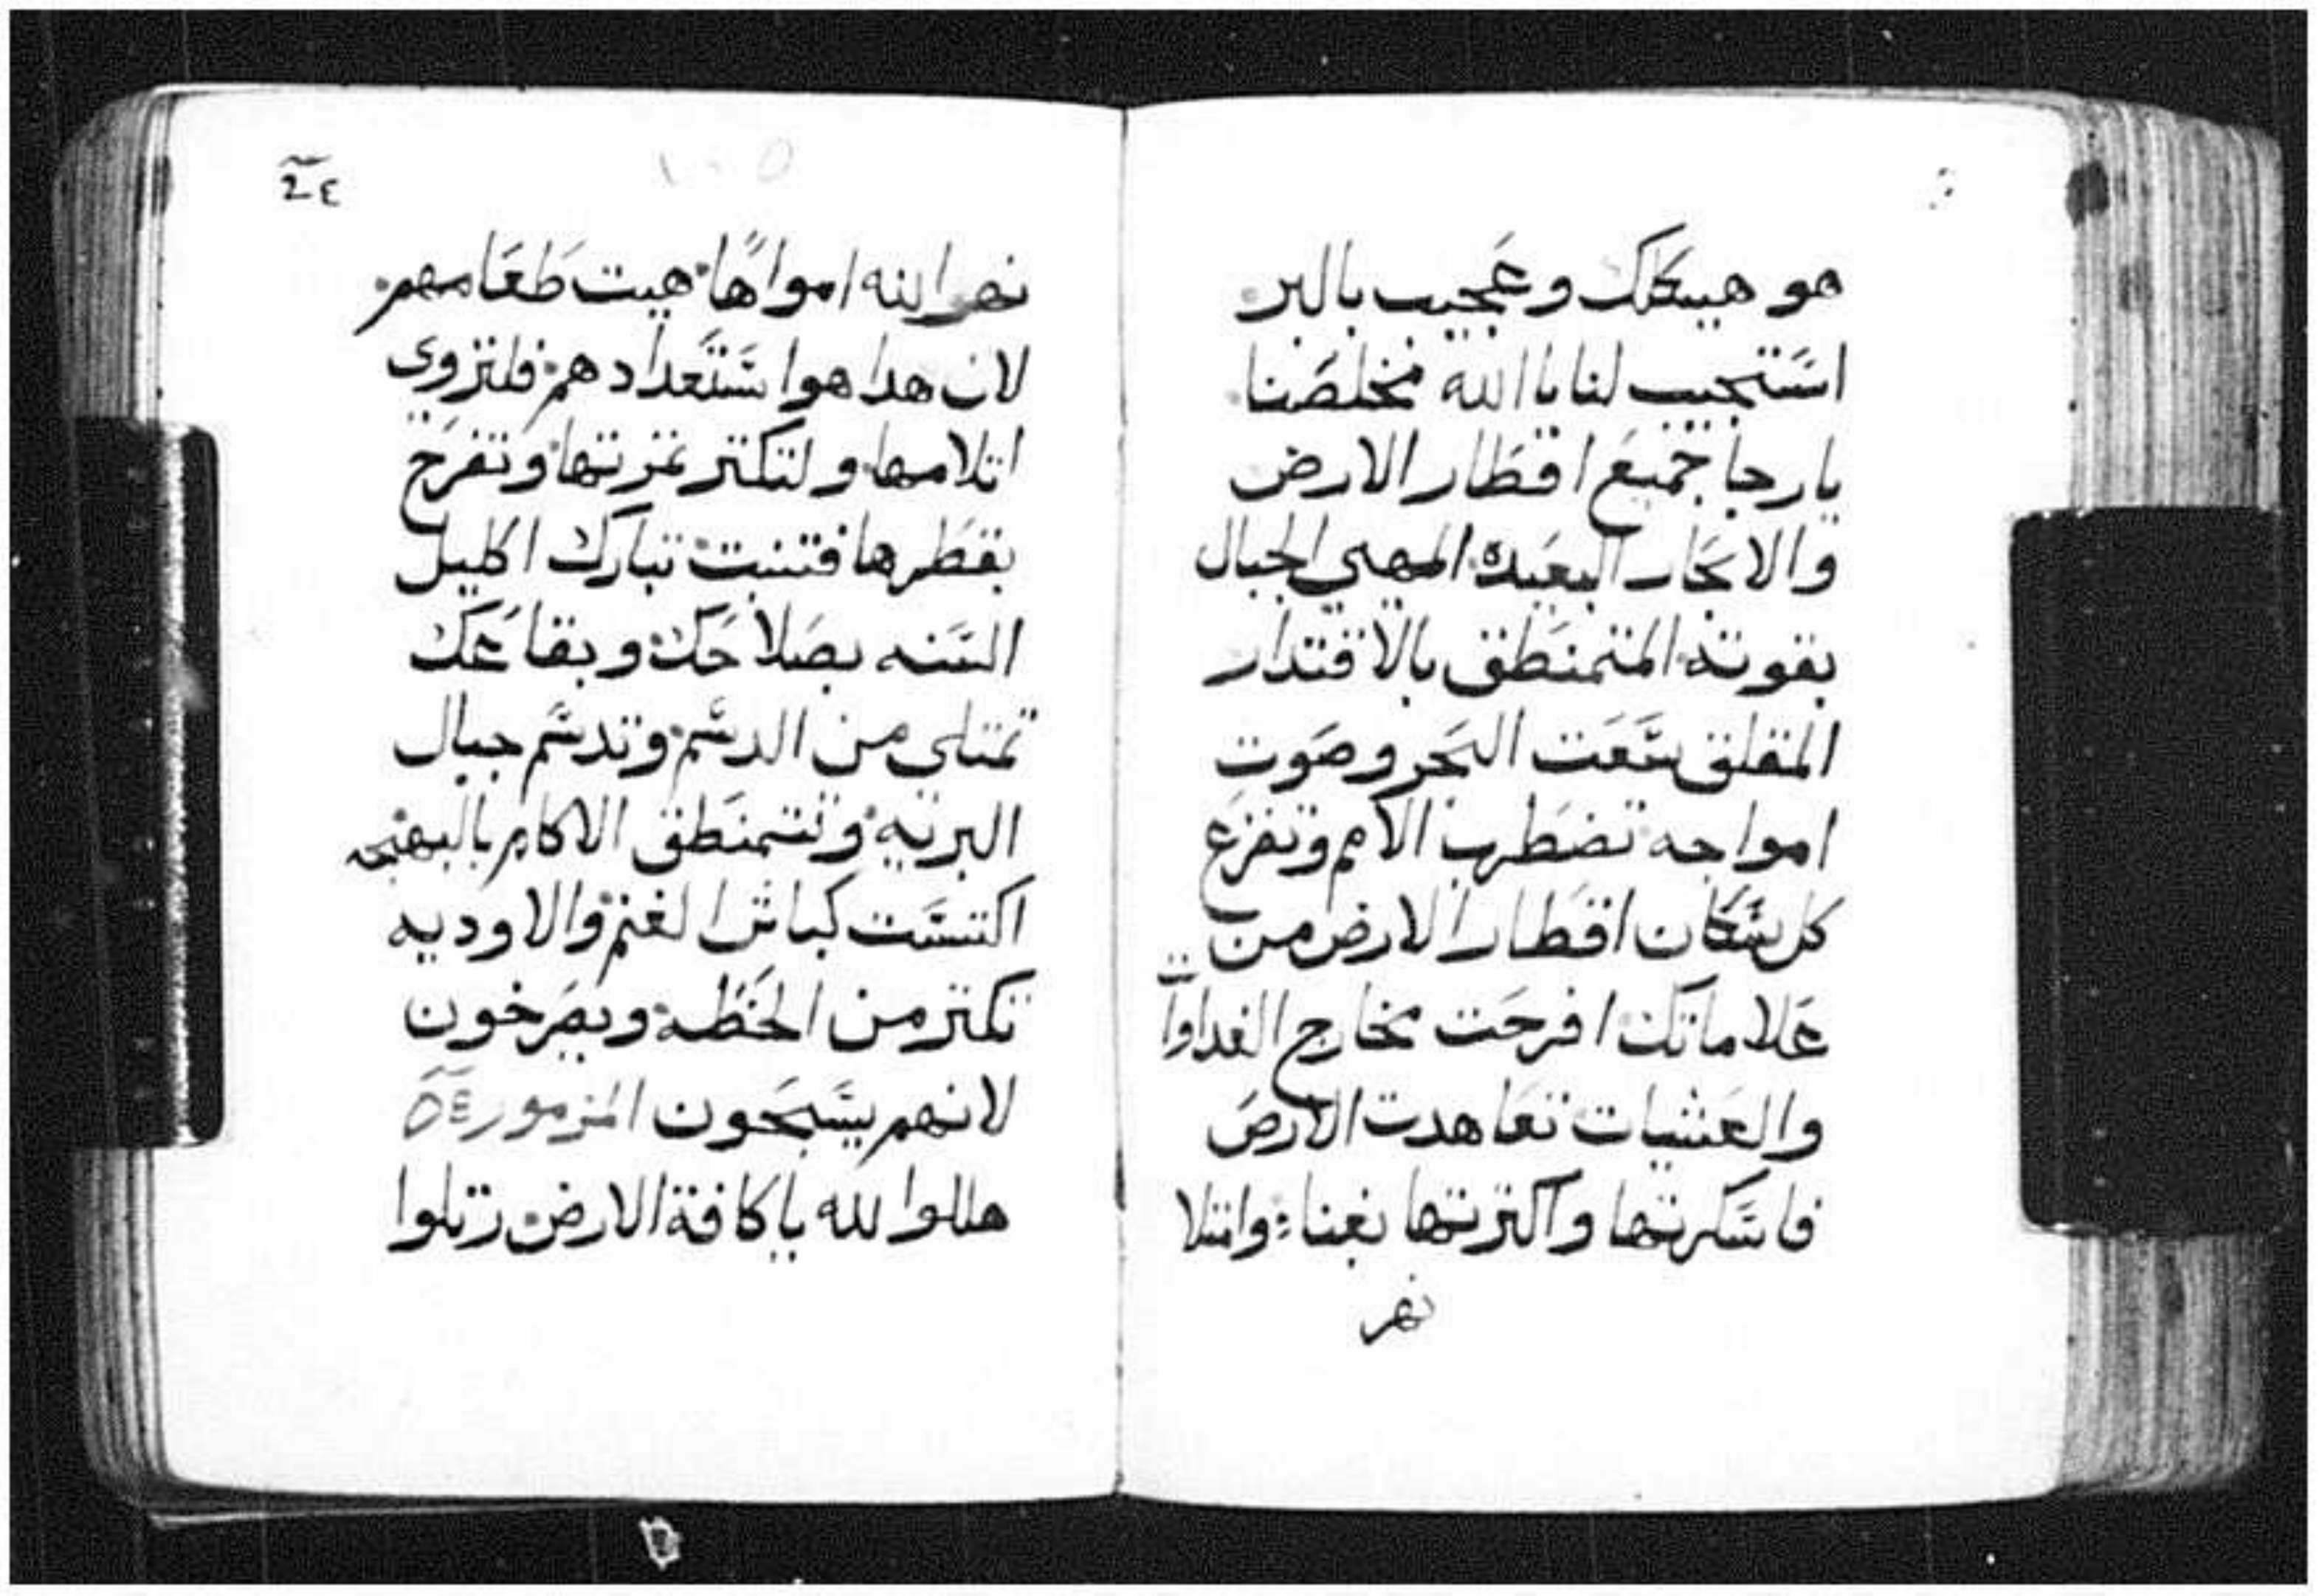 هو هيكلك وعجيب بالبر
استجيب لنا ياالله مخلصنا
يارجا جميع اقطار الارض
والابحار البعيده المهيي الجبال
بقوته المتمنطق بالاقتدار
المقلق سعت البحر وصوت
امواجه تضطرب الامم وتفزع
كل سكان اقطار الارض من
علاماتك افرحت مخارج الغداوات
والعشيات تعاهدت الارض
فاسكرتها واكترتها بغناء وامتلا
نهر
١٠٥
نهر الله امواها هيت طعامهم
لان هدا هوا ستعداد هم فلتروى
اتلامها ولتكتر غزرتها وتفرح
بقطرها فتنبت تبارك اكليل
السنه بصلاحك وبقاعك
تمتلي من الدسم وتدسم جبال
البريه وتتمنطق الاكام بالبهجه
اكتست كباش الغنم والاوديه
تكتر من الحنطه ويصرخون
لانهم يسبحون المزمور
هللوا لله ياكافة الارض رتلوا